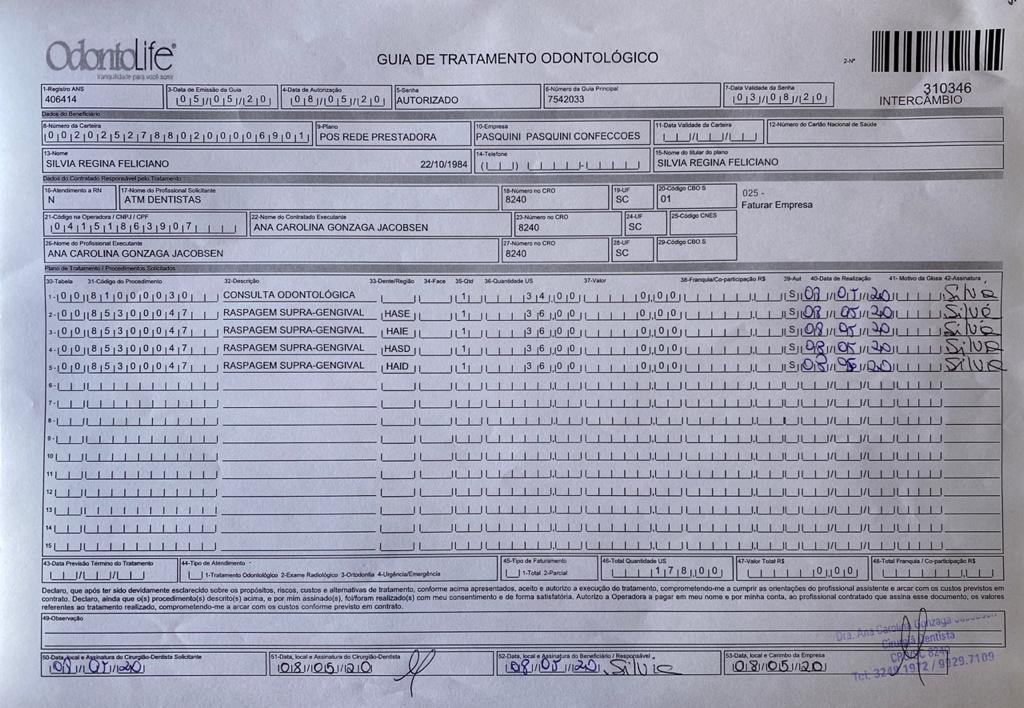 OdontoLife®
tranquilidade para você sorrir
GUIA DE TRATAMENTO ODONTOLÓGICO
2-Nº
310346
INTERCÂMBIO
1-Registro ANS
406414
3-Data de Emissão da Guia
05/05/20
4-Data de Autorização
08/05/20
5-Senha
AUTORIZADO
6-Número da Guia Principal
7542033
7-Data Validade da Senha
03/08/20
Dados do Beneficiário
8-Número da Carteira
00202527880200006901
9-Plano
POS REDE PRESTADORA
10-Empresa
PASQUINI PASQUINI CONFECCOES
11-Data Validade da Carteira
12-Número do Cartão Nacional de Saúde
13-Nome
SILVIA REGINA FELICIANO 22/10/1984
14-Telefone
15-Nome do titular do plano
SILVIA REGINA FELICIANO
Dados do Contratado Responsável pelo Tratamento
16-Atendimento a RN
N
17-Nome do Profissional Solicitante
ATM DENTISTAS
18-Número no CRO
8240
19-UF
SC
20-Código CBO S
01
025 -
Faturar Empresa
21-Código na Operadora / CNPJ / CPF
04151863907
22-Nome do Contratado Executante
ANA CAROLINA GONZAGA JACOBSEN
23-Número no CRO
8240
24-UF
SC
25-Código CNES
26-Nome do Profissional Executante
ANA CAROLINA GONZAGA JACOBSEN
27-Número no CRO
8240
28-UF
SC
29-Código CBO S
Plano de Tratamento / Procedimentos Solicitados
30-Tabela 31-Código do Procedimento 32-Descrição 33-Dente/Região 34-Face 35-Qtd 36-Quantidade US 37-Valor 38-Franquia/Co-participação R$ 39-Aut 40-Data de Realização 41- Motivo da Glosa 42-Assinatura
1- 00 81000030 CONSULTA ODONTOLÓGICA 1 34,00 0,00 S 08/05/20 Silvia
2- 00 85300047 RASPAGEM SUPRA-GENGIVAL HASE 1 36,00 0,00 S 08/05/20 Silvia
3- 00 85300047 RASPAGEM SUPRA-GENGIVAL HAIE 1 36,00 0,00 S 08/05/20 Silvia
4- 00 85300047 RASPAGEM SUPRA-GENGIVAL HASD 1 36,00 0,00 S 08/05/20 Silvia
5- 00 85300047 RASPAGEM SUPRA-GENGIVAL HAID 1 36,00 0,00 S 08/05/20 Silvia
6-
7-
8-
9-
10
11
12
13
14
15
43-Data Previsão Término do Tratamento
44-Tipo de Atendimento -
1-Tratamento Odontológico 2-Exame Radiológico 3-Ortodontia 4-Urgência/Emergência
45-Tipo de Faturamento
1-Total 2-Parcial
46-Total Quantidade US
178,00
47-Valor Total R$
0,00
48-Total Franquia / Co-participação R$
Declaro, que após ter sido devidamente esclarecido sobre os propósitos, riscos, custos e alternativas de tratamento, conforme acima apresentados, aceito e autorizo a execução do tratamento, comprometendo-me a cumprir as orientações do profissional assistente e arcar com os custos previstos em
contrato. Declaro, ainda que o(s) procedimento(s) descrito(s) acima, e por mim assinado(s), foi/foram realizado(s) com meu consentimento e de forma satisfatória. Autorizo a Operadora a pagar em meu nome e por minha conta, ao profissional contratado que assina esse documento, os valores
referentes ao tratamento realizado, comprometendo-me a arcar com os custos conforme previsto em contrato.
49-Observação
50-Data, local e Assinatura do Cirurgião-Dentista Solicitante
08/05/20
51-Data, local e Assinatura do Cirurgião-Dentista
08/05/20
52-Data, local e Assinatura do Beneficiário / Responsável
08/05/20 Silvia
53-Data, local e Carimbo da Empresa
08/05/20
Dra. Ana Carolina Gonzaga Jacobsen
Cirurgiã Dentista
CRO/SC 8240
Tel: 3249.1972 / 9929.7109